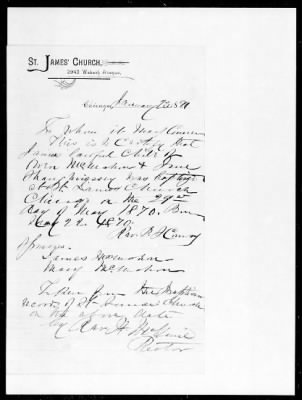 ST. JAMES' CHURCH,
2942 Wabash Avenue,
Chicago, January
To Whom it May Concern
This is to Certify that
James lawful Child of
Owen McMahon & Jane
was baptized
at St. James Church
Chicago on the 29th
day of May 1870. Born
May 22 1870.
by Rev. P. J. Conway
Sponsors.
James McMahon
Mary McMahon
Taken from the Baptism
records of St. James Church
on the above date
by Rev. H. McGuire
Rector